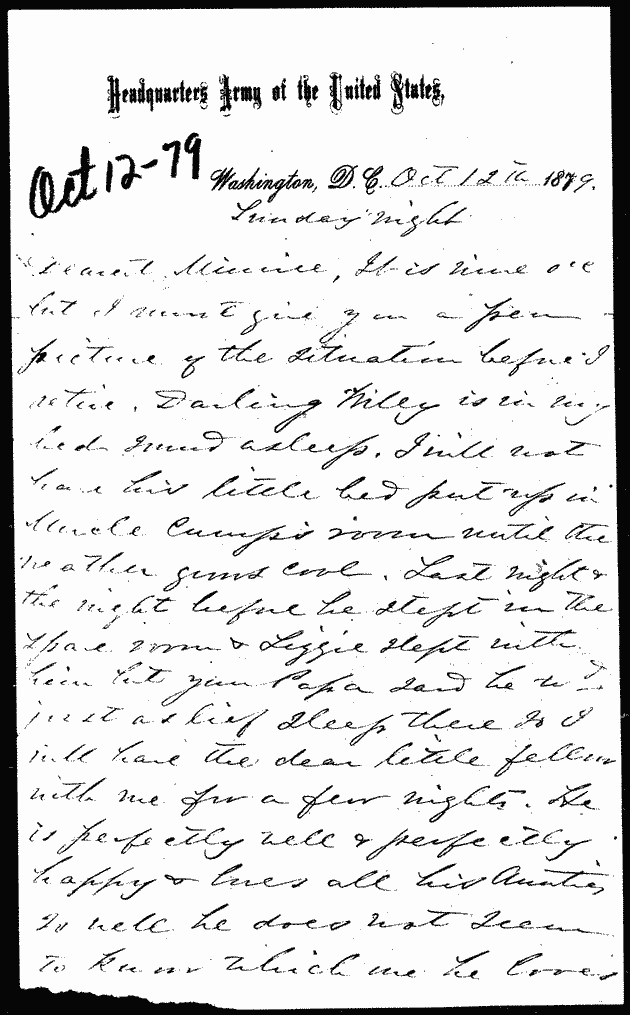 Headquarters Army of the United States,
Oct 12-79
Washington, D.C. Oct 12th 1879.
Sunday night
Dearest Minnie, It is nine
but I must give you a pen
picture of the situation before I
retire. Darling Willey is in my
bed sound asleep. I will not
have his little bed put up in
Uncle Cump's room until the
weather grows cool. Last night &
the night before he slept in the
spare room & Lizzie slept with
him but your Papa said he wd
just as lief sleep there so I
will have the dear little fellow
with me for a few nights. He
is perfectly well & perfectly
happy & loves all his Aunties
so well he does not seem
to know which one he loves